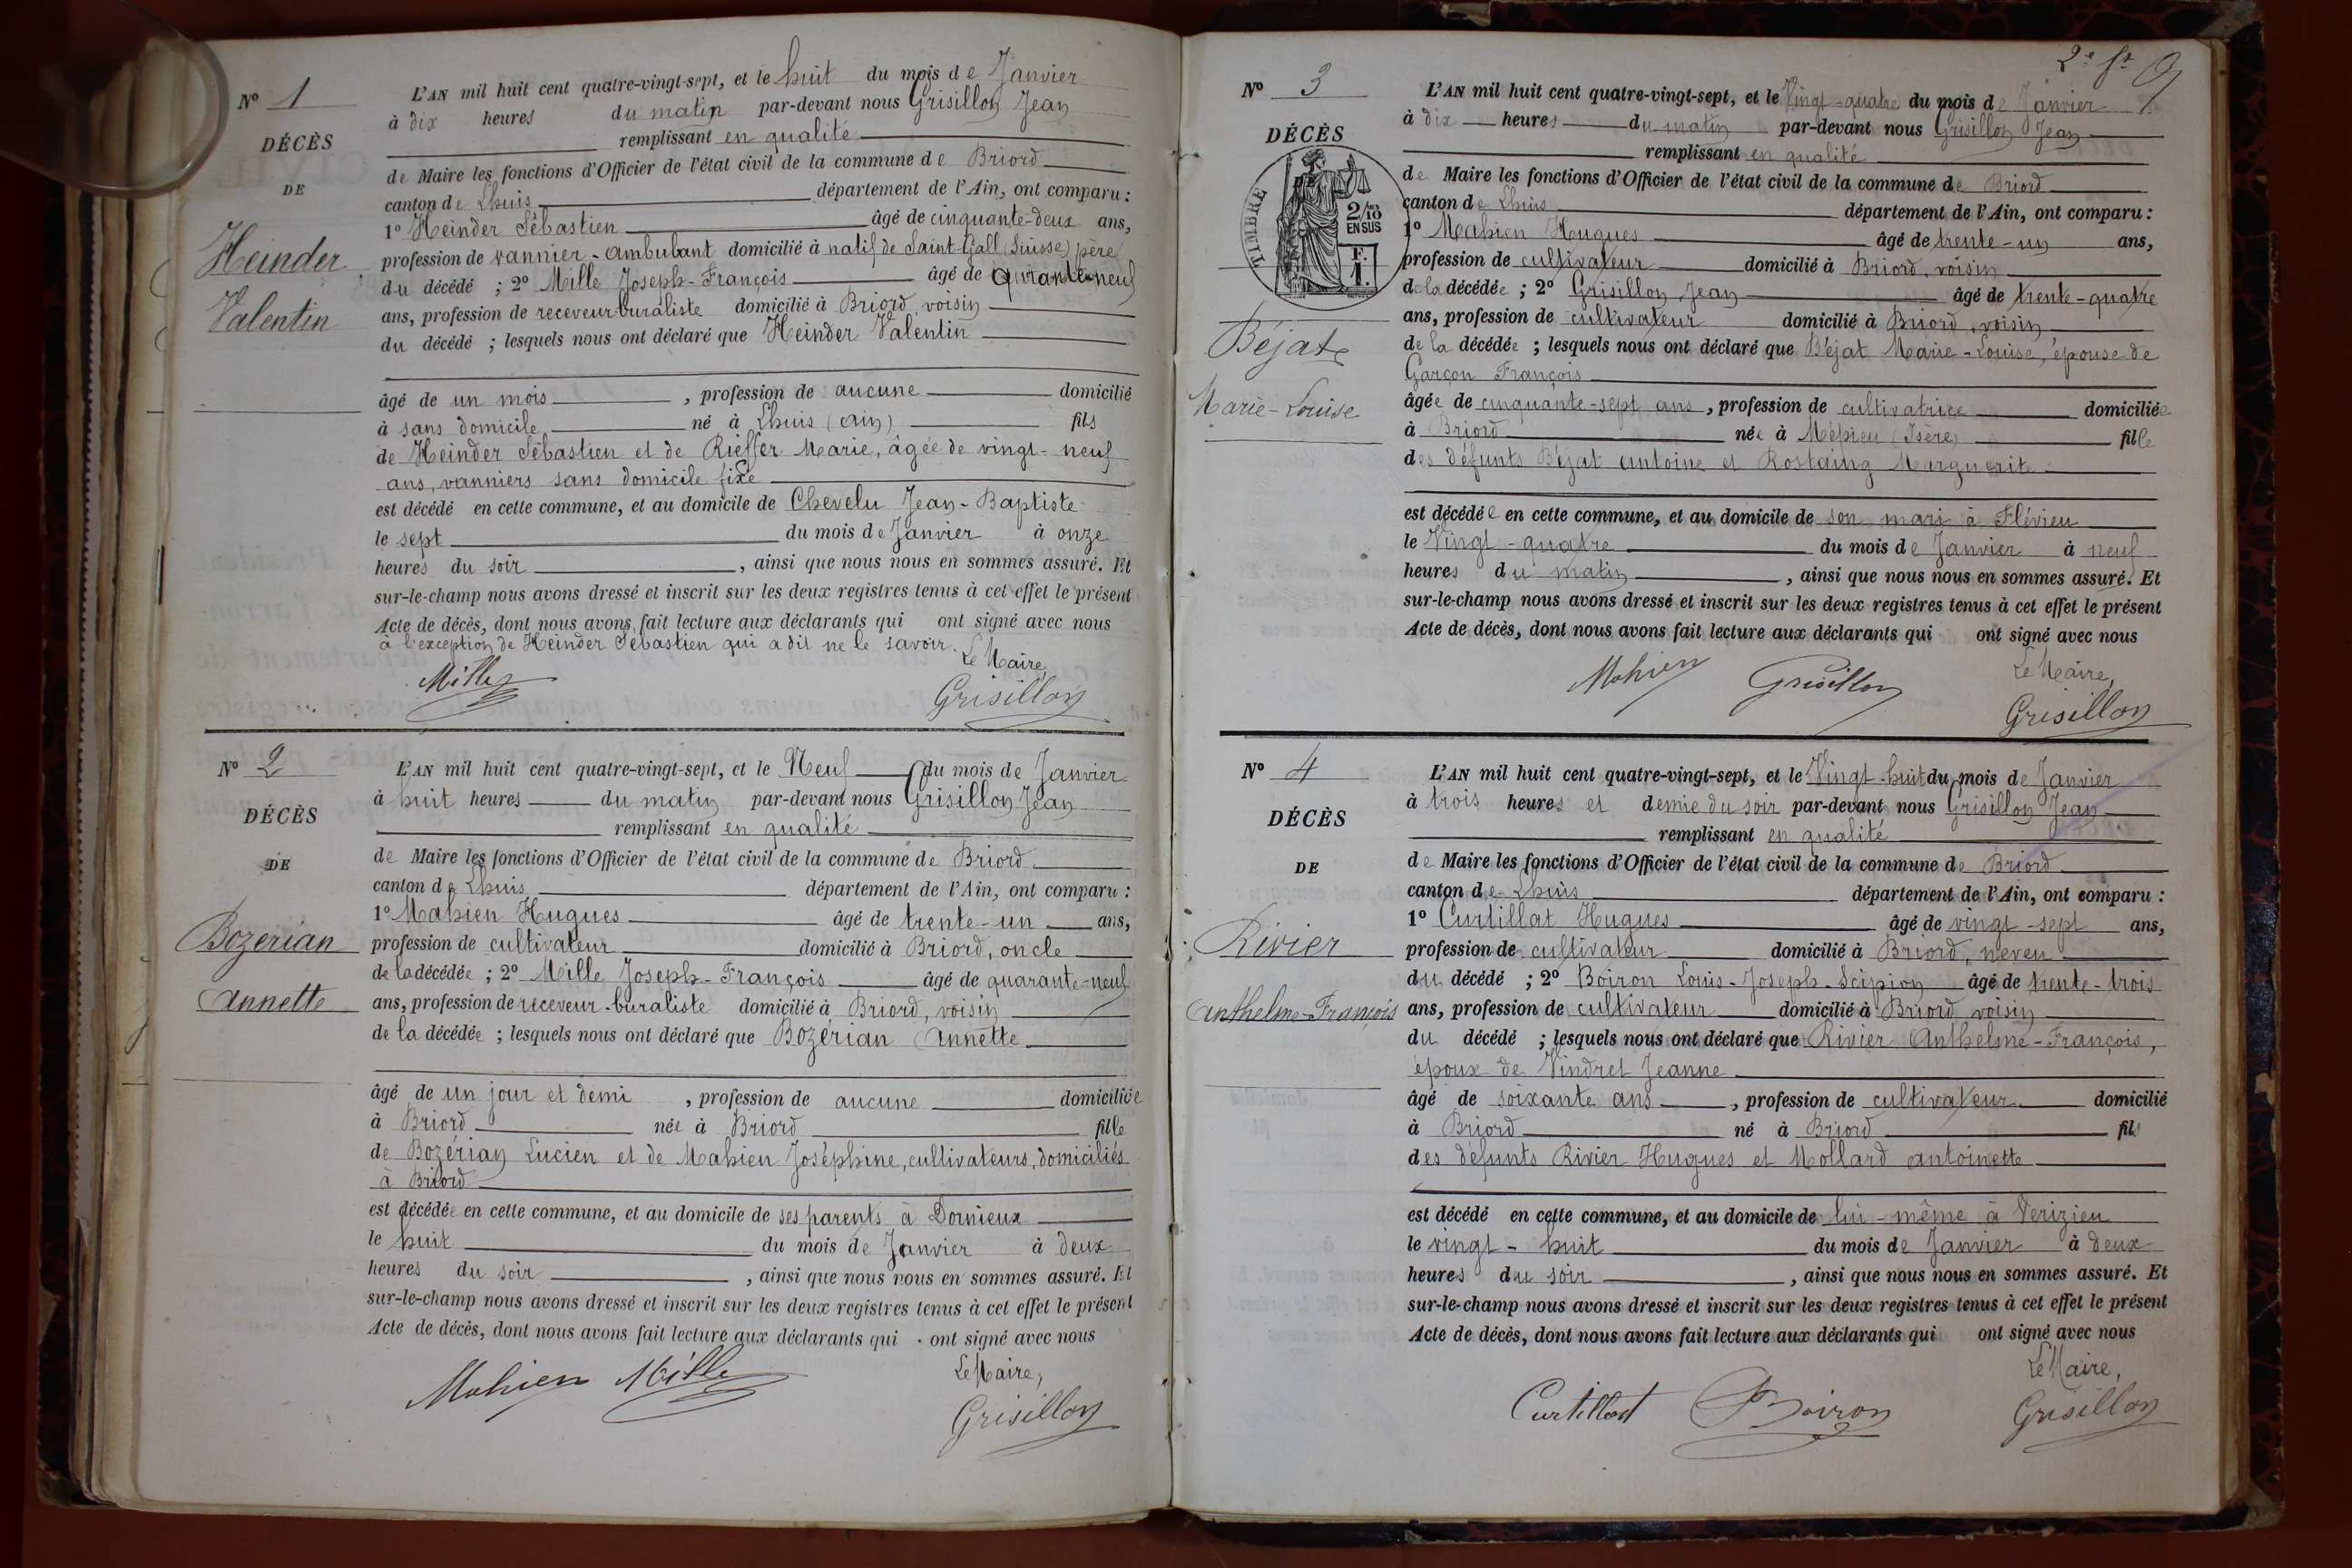 N° 1
DÉCÈS
DE
Heinder
Valentin
L'AN mil huit cent quatre-vingt-sept, et le huit du mois de Janvier
à dix heures du matin par-devant nous Grisillon Jean
remplissant en qualité
de Maire les fonctions d'Officier de l'état civil de la commune de Briord
canton de Lhuis département de l'Ain, ont comparu :
1° Heinder Sébastien âgé de cinquante-deux ans,
profession de vannier-ambulant domicilié à natif de Saint-Gall (Suisse) père
du décédé ; 2° Mille Joseph-François âgé de quarante-neuf
ans, profession de receveur-buraliste domicilié à Briord, voisin
du décédé ; lesquels nous ont déclaré que Heinder Valentin
âgé de un mois, profession de aucune domicilié
à sans domicile, né à Lhuis (Ain) fils
de Heinder Sébastien et de Rieffer Marie, âgée de vingt-neuf
ans, vanniers sans domicile fixe
est décédé en cette commune, et au domicile de Chevelu Jean-Baptiste
le sept du mois de Janvier à onze
heures du soir, ainsi que nous nous en sommes assuré. Et
sur-le-champ nous avons dressé et inscrit sur les deux registres tenus à cet effet le présent
Acte de décès, dont nous avons fait lecture aux déclarants qui ont signé avec nous
à l'exception de Heinder Sébastien qui a dit ne le savoir.
Le Maire,
Mille Grisillon
N° 2
DÉCÈS
DE
Bozerian
Annette
L'AN mil huit cent quatre-vingt-sept, et le Neuf du mois de Janvier
à huit heures du matin par-devant nous Grisillon Jean
remplissant en qualité
de Maire les fonctions d'Officier de l'état civil de la commune de Briord
canton de Lhuis département de l'Ain, ont comparu :
1° Mahien Hugues âgé de trente-un ans,
profession de cultivateur domicilié à Briord, oncle
de la décédée ; 2° Mille Joseph-François âgé de quarante-neuf
ans, profession de receveur-buraliste domicilié à Briord, voisin
de la décédée ; lesquels nous ont déclaré que Bozérian Annette
âgé de un jour et demi, profession de aucune domiciliée
à Briord née à Briord fille
de Bozérian Lucien et de Mahien Joséphine, cultivateurs, domiciliés
à Briord
est décédée en cette commune, et au domicile de ses parents à Dornieux
le huit du mois de Janvier à deux
heures du soir, ainsi que nous nous en sommes assuré. Et
sur-le-champ nous avons dressé et inscrit sur les deux registres tenus à cet effet le présent
Acte de décès, dont nous avons fait lecture aux déclarants qui ont signé avec nous
Le Maire,
Mahien Mille Grisillon
N° 3
DÉCÈS
TIMBRE
2/10 EN SUS
F. 1.
Béjat
Marie-Louise
L'AN mil huit cent quatre-vingt-sept, et le Vingt-quatre du mois de Janvier
à dix heures du matin par-devant nous Grisillon Jean
remplissant en qualité
de Maire les fonctions d'Officier de l'état civil de la commune de Briord
canton de Lhuis département de l'Ain, ont comparu :
1° Mahien Hugues âgé de trente-un ans,
profession de cultivateur domicilié à Briord, voisin
de la décédée ; 2° Grisillon Jean âgé de trente-quatre
ans, profession de cultivateur domicilié à Briord, voisin
de la décédée ; lesquels nous ont déclaré que Béjat Marie-Louise, épouse de
Garçon François
âgée de cinquante-sept ans, profession de cultivatrice domiciliée
à Briord née à Mépieu (Isère) fille
des défunts Béjat Antoine et Rostaing Marguerite
est décédée en cette commune, et au domicile de son mari à Flévieu
le Vingt-quatre du mois de Janvier à neuf
heures du matin, ainsi que nous nous en sommes assuré. Et
sur-le-champ nous avons dressé et inscrit sur les deux registres tenus à cet effet le présent
Acte de décès, dont nous avons fait lecture aux déclarants qui ont signé avec nous
Le Maire,
Mahien Grisillon Grisillon
N° 4
DÉCÈS
DE
Rivier
Anthelme-François
L'AN mil huit cent quatre-vingt-sept, et le Vingt-huit du mois de Janvier
à trois heures et demie du soir par-devant nous Grisillon Jean
remplissant en qualité
de Maire les fonctions d'Officier de l'état civil de la commune de Briord
canton de Lhuis département de l'Ain, ont comparu :
1° Curtillat Hugues âgé de vingt-sept ans,
profession de cultivateur domicilié à Briord, neveu
du décédé ; 2° Boiron Louis-Joseph-Scipion âgé de trente-trois
ans, profession de cultivateur domicilié à Briord, voisin
du décédé ; lesquels nous ont déclaré que Rivier Anthelme-François,
époux de Vindret Jeanne
âgé de soixante ans, profession de cultivateur domicilié
à Briord né à Briord fils
des défunts Rivier Hugues et Mollard Antoinette
est décédé en cette commune, et au domicile de lui-même à Verizieu
le vingt-huit du mois de Janvier à deux
heures du soir, ainsi que nous nous en sommes assuré. Et
sur-le-champ nous avons dressé et inscrit sur les deux registres tenus à cet effet le présent
Acte de décès, dont nous avons fait lecture aux déclarants qui ont signé avec nous
Le Maire,
Curtillat Boiron Grisillon